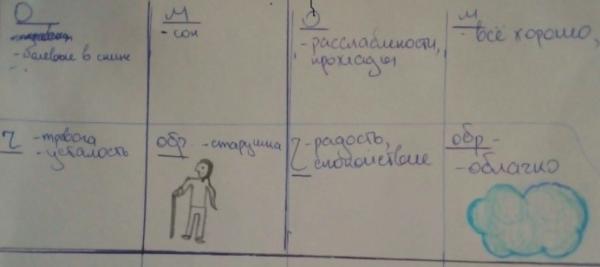 О
- болевые в спине
М
- сон
О
- расслабленности,
прохлады
М
- всё хорошо,
Ч
- тревога
- усталость
обр. - старушка
Ч
- радость,
спокойствие
обр -
- облачко